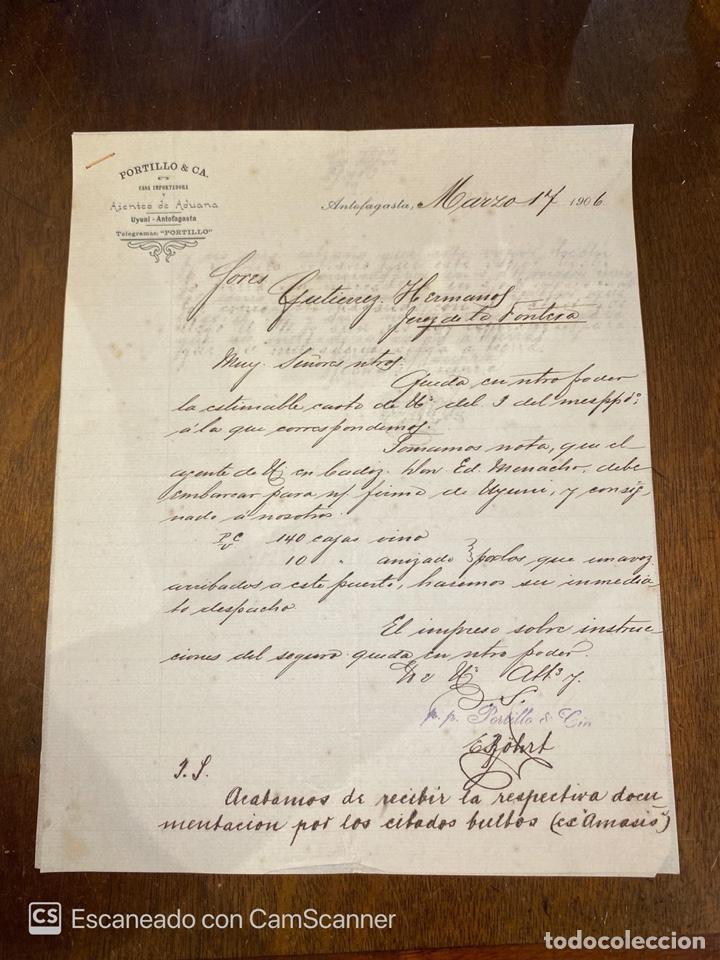 PORTILLO & CA.
CASA IMPORTADORA
Y
Ajentes de Aduana
Uyuni - Antofagasta
Telegramas: "PORTILLO"
Antofagasta, Marzo 17 1906
Sores
Gutierrez Hermanos
Jerez de la Fontera
Muy Señores ntros.
Queda en ntro poder
la estimable carta de Us del 9 del mes ppdo
á la que correspondemos.
Tomamos nota, que el
agente de Us en Cadiz. Don Ed. Menacho, debe
embarcar para n/ firma de Uyuni, y consig-
nado á nosotros.
140 cajas vino
10 " anizado } por los que una voz
arribados a este puerto, haremos su inmedia
to despacho.
El impreso sobre instruc-
ciones del seguro queda en ntro poder.
De Us Atts y.
S. S.
p. p. Portillo & Cia
P. S.
Acabamos de recibir la respectiva docu-
mentacion por los citados bultos (ex "Amasis")
CS Escaneado con CamScanner
todocoleccion